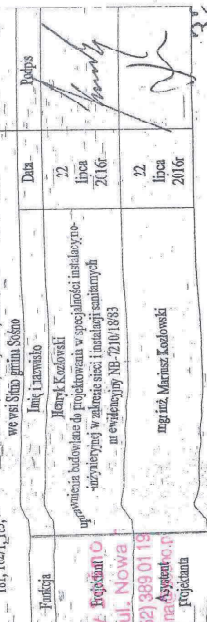 we wsi Sitno gmina Sośno
Funkcja
Imię i nazwisko
Data
Podpis
Projektant
Henryk Kozłowski
uprawnienia budowlane do projektowania w specjalności instalacyjno-
-inżynieryjnej w zakresie sieci i instalacji sanitarnych
nr ewidencyjny NB-7210/18/83
22
lipca
2016r
Asystent
projektanta
mgr inż. Mariusz Kozłowski
22
lipca
2016r
ul. Nowa
2) 389 01 19